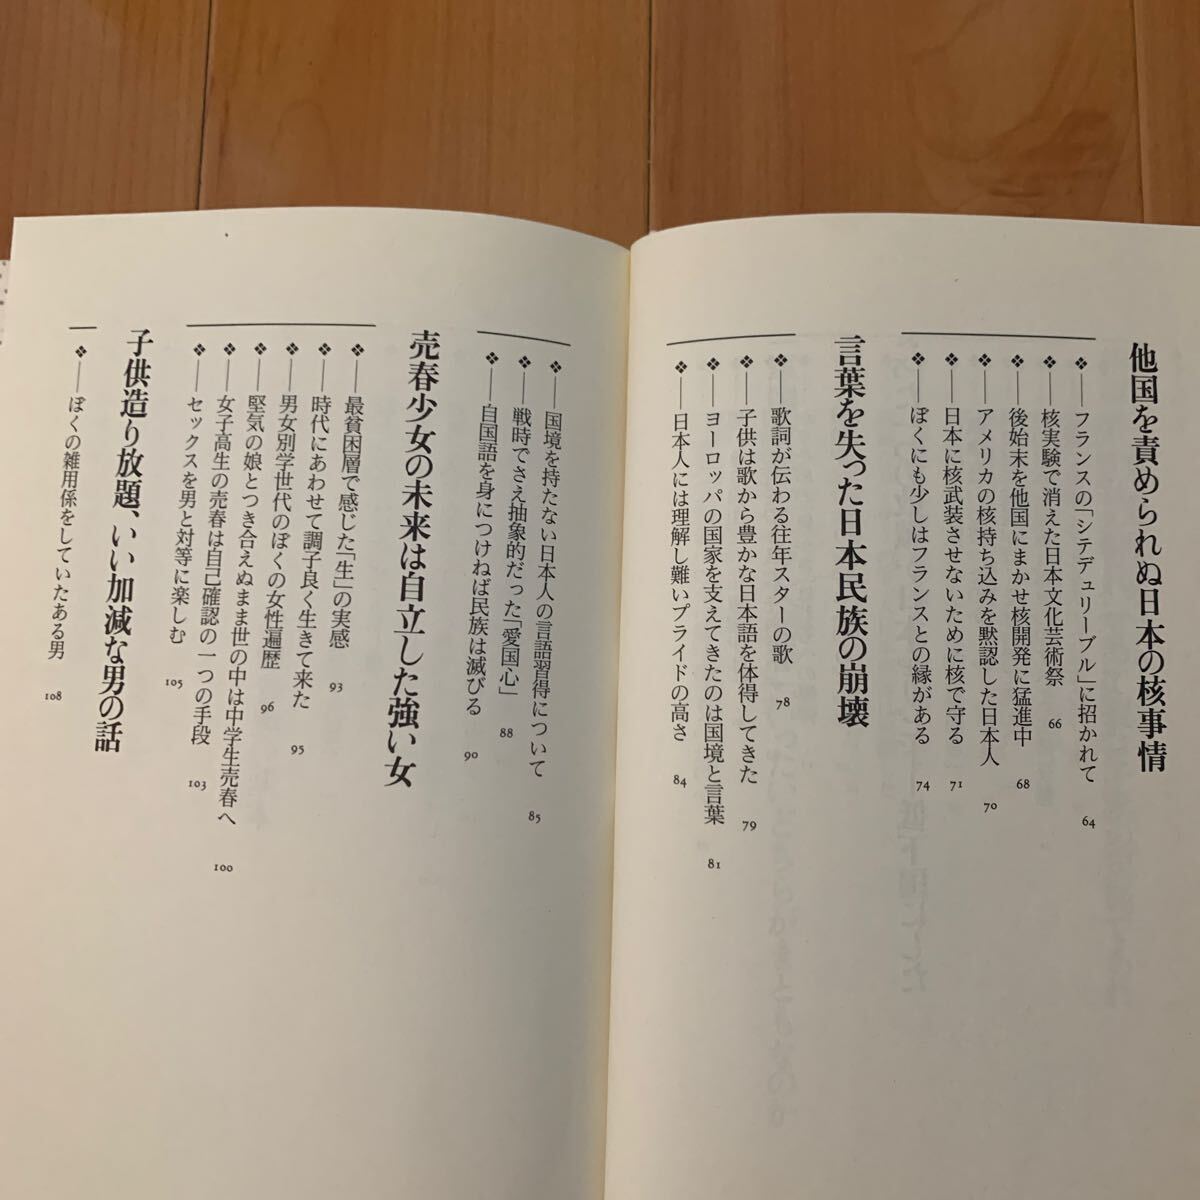 他国を責められぬ日本の核事情
❖──フランスの「シテデュリーブル」に招かれて 64
❖──核実験で消えた日本文化芸術祭 66
❖──後始末を他国にまかせ核開発に猛進中 68
❖──アメリカの核持ち込みを黙認した日本人 70
❖──日本に核武装させないために核で守る 71
❖──ぼくにも少しはフランスとの縁がある 74
言葉を失った日本民族の崩壊
❖──歌詞が伝わる往年スターの歌 78
❖──子供は歌から豊かな日本語を体得してきた 79
❖──ヨーロッパの国家を支えてきたのは国境と言葉 81
❖──日本人には理解し難いプライドの高さ 84
❖──国境を持たない日本人の言語習得について 85
❖──戦時でさえ抽象的だった「愛国心」 88
❖──自国語を身につけねば民族は滅びる 90
売春少女の未来は自立した強い女
❖──最貧困層で感じた「生」の実感 93
❖──時代にあわせて調子良く生きて来た 95
❖──男女別学世代のぼくの女性遍歴 96
❖──堅気の娘とつき合えぬまま世の中は中学生売春へ 100
❖──女子高生の売春は自己確認の一つの手段 103
❖──セックスを男と対等に楽しむ 105
子供造り放題、いい加減な男の話
❖──ぼくの雑用係をしていたある男 108